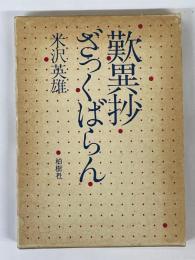 歎異抄
ざっくばらん
米沢英雄
柏樹社